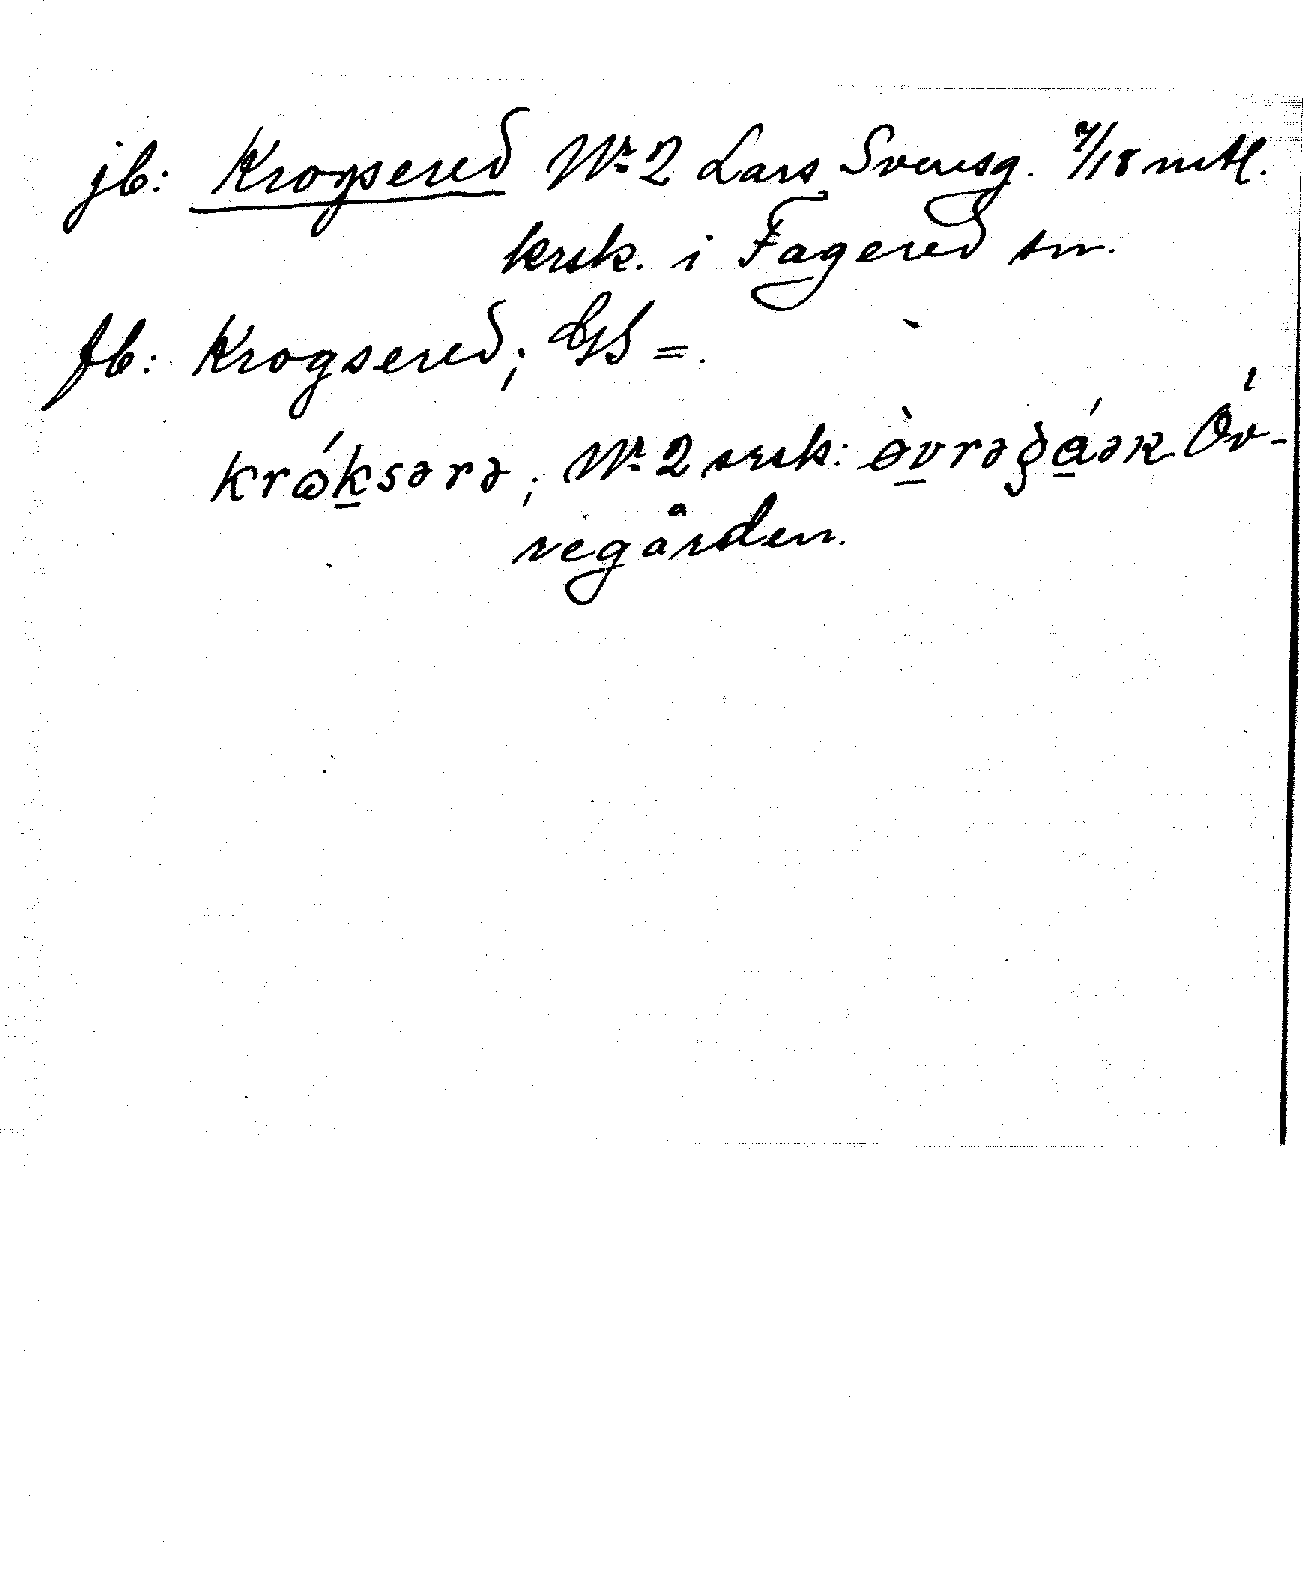 jb: Krogsered Nr 2 Lars Svensg. 7/18 mtl.
krsk. i Fagered sn.
fb: Krogsered; GS =.
kråksərə, Nr 2 : Öv-
regården.